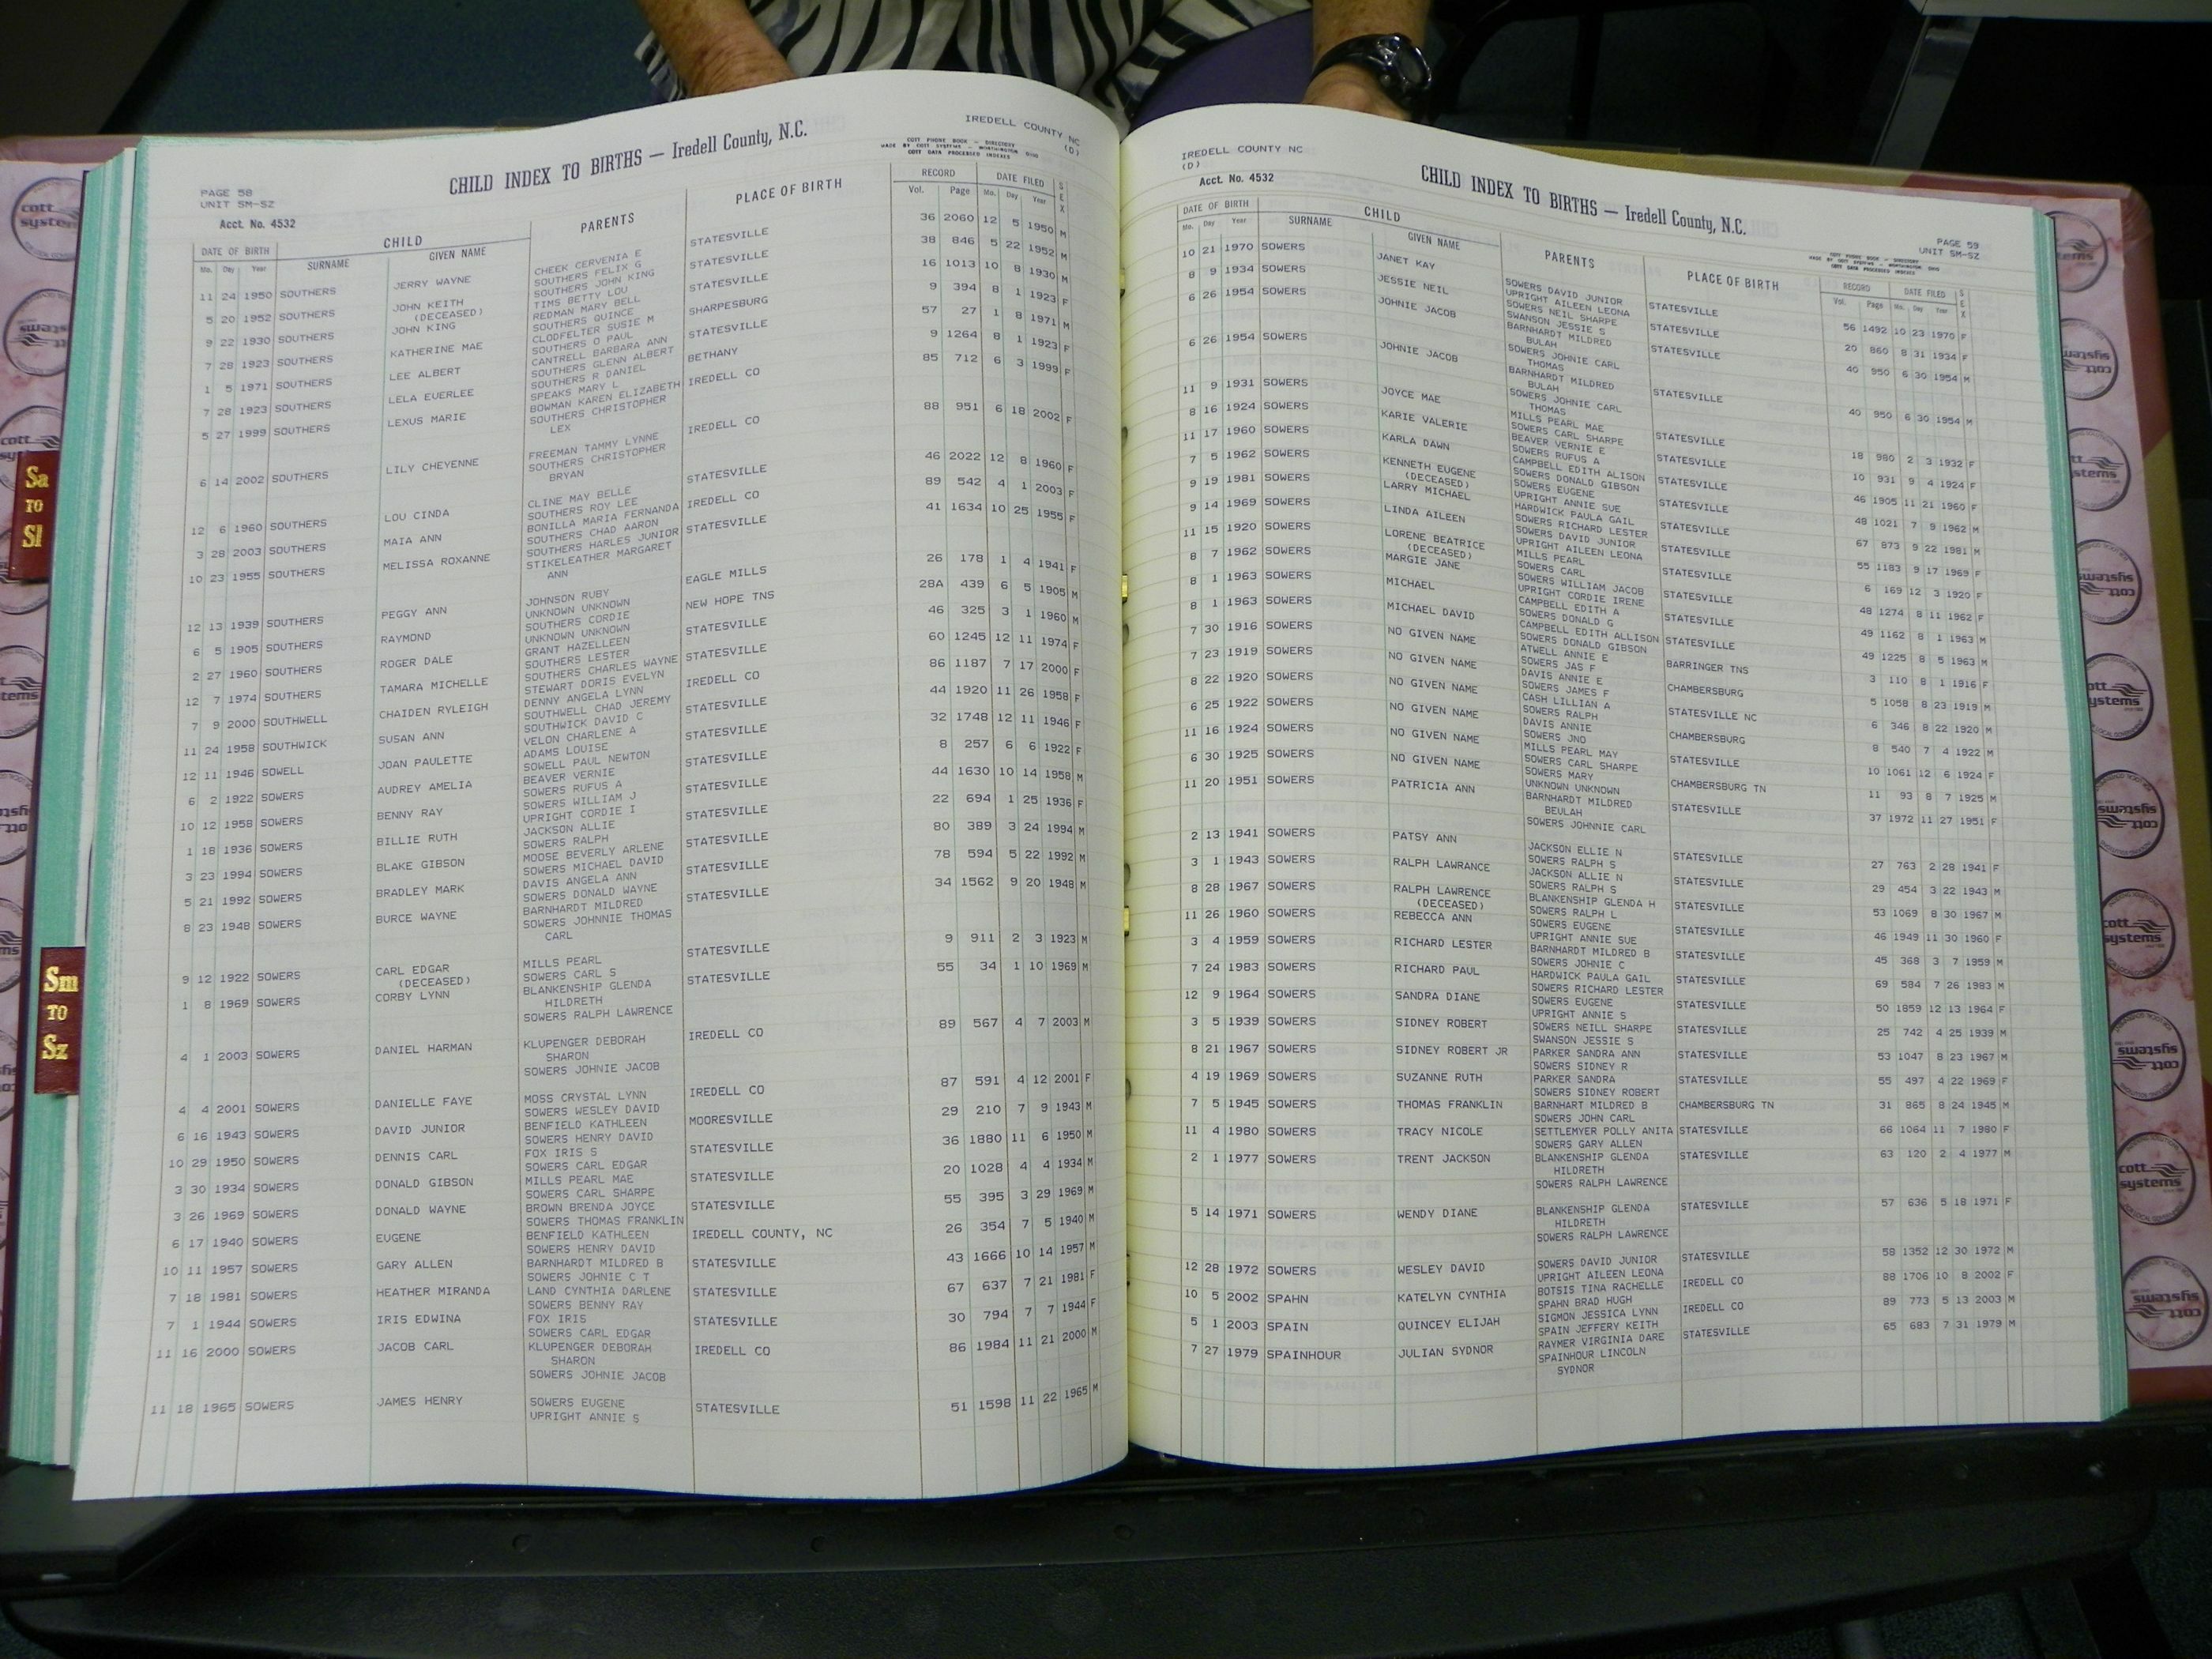 IREDELL COUNTY NC
(D)
CHILD INDEX TO BIRTHS — Iredell County, N.C.
COTT PHONE BOOK - DIRECTORY
MADE BY COTT SYSTEMS - WORTHINGTON OHIO
COTT DATA PROCESSED INDEXES
PAGE 58
UNIT SM-SZ
Acct. No. 4532
DATE OF BIRTH CHILD PARENTS PLACE OF BIRTH RECORD DATE FILED SEX
Mo. Day Year SURNAME GIVEN NAME Vol. Page Mo. Day Year
11 24 1950 SOUTHERS JERRY WAYNE CHEEK CERVENIA E STATESVILLE 36 2060 12 5 1950 M
SOUTHERS FELIX G
5 20 1952 SOUTHERS JOHN KEITH SOUTHERS JOHN KING STATESVILLE 38 846 5 22 1952 M
(DECEASED) TIMS BETTY LOU
9 22 1930 SOUTHERS JOHN KING REDMAN MARY BELL STATESVILLE 16 1013 10 8 1930 M
SOUTHERS QUINCE
7 28 1923 SOUTHERS KATHERINE MAE CLODFELTER SUSIE M SHARPESBURG 9 394 8 1 1923 F
SOUTHERS O PAUL
1 5 1971 SOUTHERS LEE ALBERT CANTRELL BARBARA ANN STATESVILLE 57 27 1 8 1971 M
SOUTHERS GLENN ALBERT
7 28 1923 SOUTHERS LELA EUERLEE SOUTHERS R DANIEL BETHANY 9 1264 8 1 1923 F
SPEAKS MARY L
5 27 1999 SOUTHERS LEXUS MARIE BOWMAN KAREN ELIZABETH IREDELL CO 85 712 6 3 1999 F
SOUTHERS CHRISTOPHER
LEX
6 14 2002 SOUTHERS LILY CHEYENNE FREEMAN TAMMY LYNNE IREDELL CO 88 951 6 18 2002 F
SOUTHERS CHRISTOPHER
BRYAN
12 6 1960 SOUTHERS LOU CINDA CLINE MAY BELLE STATESVILLE 46 2022 12 8 1960 F
SOUTHERS ROY LEE
3 28 2003 SOUTHERS MAIA ANN BONILLA MARIA FERNANDA IREDELL CO 89 542 4 1 2003 F
SOUTHERS CHAD AARON
10 23 1955 SOUTHERS MELISSA ROXANNE SOUTHERS HARLES JUNIOR STATESVILLE 41 1634 10 25 1955 F
STIKELEATHER MARGARET
ANN
12 13 1939 SOUTHERS PEGGY ANN JOHNSON RUBY EAGLE MILLS 26 178 1 4 1941 F
UNKNOWN UNKNOWN
6 5 1905 SOUTHERS RAYMOND SOUTHERS CORDIE NEW HOPE TNS 28A 439 6 5 1905 M
UNKNOWN UNKNOWN
2 27 1960 SOUTHERS ROGER DALE GRANT HAZELLEEN STATESVILLE 46 325 3 1 1960 M
SOUTHERS LESTER
12 7 1974 SOUTHERS TAMARA MICHELLE SOUTHERS CHARLES WAYNE STATESVILLE 60 1245 12 11 1974 F
STEWART DORIS EVELYN
7 9 2000 SOUTHWELL CHAIDEN RYLEIGH DENNY ANGELA LYNN IREDELL CO 86 1187 7 17 2000 F
SOUTHWELL CHAD JEREMY
11 24 1958 SOUTHWICK SUSAN ANN SOUTHWICK DAVID C STATESVILLE 44 1920 11 26 1958 F
VELON CHARLENE A
12 11 1946 SOWELL JOAN PAULETTE ADAMS LOUISE STATESVILLE 32 1748 12 11 1946 F
SOWELL PAUL NEWTON
6 2 1922 SOWERS AUDREY AMELIA BEAVER VERNIE STATESVILLE 8 257 6 6 1922 F
SOWERS RUFUS A
10 12 1958 SOWERS BENNY RAY SOWERS WILLIAM J STATESVILLE 44 1630 10 14 1958 M
UPRIGHT CORDIE I
1 18 1936 SOWERS BILLIE RUTH JACKSON ALLIE STATESVILLE 22 694 1 25 1936 F
SOWERS RALPH
3 23 1994 SOWERS BLAKE GIBSON MOOSE BEVERLY ARLENE STATESVILLE 80 389 3 24 1994 M
SOWERS MICHAEL DAVID
5 21 1992 SOWERS BRADLEY MARK DAVIS ANGELA ANN STATESVILLE 78 594 5 22 1992 M
SOWERS DONALD WAYNE
8 23 1948 SOWERS BURCE WAYNE BARNHARDT MILDRED STATESVILLE 34 1562 9 20 1948 M
SOWERS JOHNNIE THOMAS
CARL
9 12 1922 SOWERS CARL EDGAR MILLS PEARL STATESVILLE 9 911 2 3 1923 M
(DECEASED) SOWERS CARL S
1 8 1969 SOWERS CORBY LYNN BLANKENSHIP GLENDA STATESVILLE 55 34 1 10 1969 M
HILDRETH
SOWERS RALPH LAWRENCE
4 1 2003 SOWERS DANIEL HARMAN KLUPENGER DEBORAH IREDELL CO 89 567 4 7 2003 M
SHARON
SOWERS JOHNIE JACOB
4 4 2001 SOWERS DANIELLE FAYE MOSS CRYSTAL LYNN IREDELL CO 87 591 4 12 2001 F
SOWERS WESLEY DAVID
6 16 1943 SOWERS DAVID JUNIOR BENFIELD KATHLEEN MOORESVILLE 29 210 7 9 1943 M
SOWERS HENRY DAVID
10 29 1950 SOWERS DENNIS CARL FOX IRIS S STATESVILLE 36 1880 11 6 1950 M
SOWERS CARL EDGAR
3 30 1934 SOWERS DONALD GIBSON MILLS PEARL MAE STATESVILLE 20 1028 4 4 1934 M
SOWERS CARL SHARPE
3 26 1969 SOWERS DONALD WAYNE BROWN BRENDA JOYCE STATESVILLE 55 395 3 29 1969 M
SOWERS THOMAS FRANKLIN
6 17 1940 SOWERS EUGENE BENFIELD KATHLEEN IREDELL COUNTY, NC 26 354 7 5 1940 M
SOWERS HENRY DAVID
10 11 1957 SOWERS GARY ALLEN BARNHARDT MILDRED B STATESVILLE 43 1666 10 14 1957 M
SOWERS JOHNIE C T
7 18 1981 SOWERS HEATHER MIRANDA LAND CYNTHIA DARLENE STATESVILLE 67 637 7 21 1981 F
SOWERS BENNY RAY
7 1 1944 SOWERS IRIS EDWINA FOX IRIS STATESVILLE 30 794 7 7 1944 F
SOWERS CARL EDGAR
11 16 2000 SOWERS JACOB CARL KLUPENGER DEBORAH IREDELL CO 86 1984 11 21 2000 M
SHARON
SOWERS JOHNIE JACOB
11 18 1965 SOWERS JAMES HENRY SOWERS EUGENE STATESVILLE 51 1598 11 22 1965 M
UPRIGHT ANNIE S
IREDELL COUNTY NC
(D)
Acct. No. 4532
CHILD INDEX TO BIRTHS — Iredell County, N.C.
PAGE 59
UNIT SM-SZ
COTT PHONE BOOK - DIRECTORY
MADE BY COTT SYSTEMS - WORTHINGTON OHIO
COTT DATA PROCESSED INDEXES
DATE OF BIRTH CHILD PARENTS PLACE OF BIRTH RECORD DATE FILED SEX
Mo. Day Year SURNAME GIVEN NAME Vol. Page Mo. Day Year
10 21 1970 SOWERS JANET KAY SOWERS DAVID JUNIOR STATESVILLE 56 1492 10 23 1970 F
UPRIGHT AILEEN LEONA
8 9 1934 SOWERS JESSIE NEIL SOWERS NEIL SHARPE STATESVILLE 20 860 8 31 1934 F
SWANSON JESSIE S
6 26 1954 SOWERS JOHNIE JACOB BARNHARDT MILDRED STATESVILLE 40 950 6 30 1954 M
BULAH
SOWERS JOHNIE CARL
THOMAS
6 26 1954 SOWERS JOHNIE JACOB BARNHARDT MILDRED STATESVILLE 40 950 6 30 1954 M
BULAH
SOWERS JOHNIE CARL
THOMAS
11 9 1931 SOWERS JOYCE MAE MILLS PEARL MAE STATESVILLE 18 980 2 3 1932 F
SOWERS CARL SHARPE
8 16 1924 SOWERS KARIE VALERIE BEAVER VERNIE E STATESVILLE 10 931 9 4 1924 F
SOWERS RUFUS A
11 17 1960 SOWERS KARLA DAWN CAMPBELL EDITH ALISON STATESVILLE 46 1905 11 21 1960 F
SOWERS DONALD GIBSON
7 5 1962 SOWERS KENNETH EUGENE SOWERS EUGENE STATESVILLE 48 1021 7 9 1962 M
(DECEASED) UPRIGHT ANNIE SUE
9 19 1981 SOWERS LARRY MICHAEL HARDWICK PAULA GAIL STATESVILLE 67 873 9 22 1981 M
SOWERS RICHARD LESTER
9 14 1969 SOWERS LINDA AILEEN SOWERS DAVID JUNIOR STATESVILLE 55 1183 9 17 1969 F
UPRIGHT AILEEN LEONA
11 15 1920 SOWERS LORENE BEATRICE MILLS PEARL STATESVILLE 6 169 12 3 1920 F
(DECEASED) SOWERS CARL
8 7 1962 SOWERS MARGIE JANE SOWERS WILLIAM JACOB STATESVILLE 48 1274 8 11 1962 F
UPRIGHT CORDIE IRENE
8 1 1963 SOWERS MICHAEL CAMPBELL EDITH A STATESVILLE 49 1162 8 1 1963 M
SOWERS DONALD G
8 1 1963 SOWERS MICHAEL DAVID CAMPBELL EDITH ALLISON STATESVILLE 49 1225 8 5 1963 M
SOWERS DONALD GIBSON
7 30 1916 SOWERS NO GIVEN NAME ATWELL ANNIE E BARRINGER TNS 3 110 8 1 1916 F
SOWERS JAS F
7 23 1919 SOWERS NO GIVEN NAME DAVIS ANNIE E CHAMBERSBURG 5 1058 8 23 1919 M
SOWERS JAMES F
8 22 1920 SOWERS NO GIVEN NAME CASH LILLIAN A STATESVILLE NC 6 346 8 22 1920 M
SOWERS RALPH
6 25 1922 SOWERS NO GIVEN NAME DAVIS ANNIE CHAMBERSBURG 8 540 7 4 1922 M
SOWERS JNO
11 16 1924 SOWERS NO GIVEN NAME MILLS PEARL MAY STATESVILLE 10 1061 12 6 1924 F
SOWERS CARL SHARPE
6 30 1925 SOWERS NO GIVEN NAME SOWERS MARY CHAMBERSBURG TN 11 93 8 7 1925 M
UNKNOWN UNKNOWN
11 20 1951 SOWERS PATRICIA ANN BARNHARDT MILDRED STATESVILLE 37 1972 11 27 1951 F
BEULAH
SOWERS JOHNNIE CARL
2 13 1941 SOWERS PATSY ANN JACKSON ELLIE N STATESVILLE 27 763 2 28 1941 F
SOWERS RALPH S
3 1 1943 SOWERS RALPH LAWRANCE JACKSON ALLIE N STATESVILLE 29 454 3 22 1943 M
SOWERS RALPH S
8 28 1967 SOWERS RALPH LAWRENCE BLANKENSHIP GLENDA H STATESVILLE 53 1069 8 30 1967 M
(DECEASED) SOWERS RALPH L
11 26 1960 SOWERS REBECCA ANN SOWERS EUGENE STATESVILLE 46 1949 11 30 1960 F
UPRIGHT ANNIE SUE
3 4 1959 SOWERS RICHARD LESTER BARNHARDT MILDRED B STATESVILLE 45 368 3 7 1959 M
SOWERS JOHNIE C
7 24 1983 SOWERS RICHARD PAUL HARDWICK PAULA GAIL STATESVILLE 69 584 7 26 1983 M
SOWERS RICHARD LESTER
12 9 1964 SOWERS SANDRA DIANE SOWERS EUGENE STATESVILLE 50 1859 12 13 1964 F
UPRIGHT ANNIE S
3 5 1939 SOWERS SIDNEY ROBERT SOWERS NEILL SHARPE STATESVILLE 25 742 4 25 1939 M
SWANSON JESSIE S
8 21 1967 SOWERS SIDNEY ROBERT JR PARKER SANDRA ANN STATESVILLE 53 1047 8 23 1967 M
SOWERS SIDNEY R
4 19 1969 SOWERS SUZANNE RUTH PARKER SANDRA STATESVILLE 55 497 4 22 1969 F
SOWERS SIDNEY ROBERT
7 5 1945 SOWERS THOMAS FRANKLIN BARNHART MILDRED B CHAMBERSBURG TN 31 865 8 24 1945 M
SOWERS JOHN CARL
11 4 1980 SOWERS TRACY NICOLE SETTLEMYER POLLY ANITA STATESVILLE 66 1064 11 7 1980 F
SOWERS GARY ALLEN
2 1 1977 SOWERS TRENT JACKSON BLANKENSHIP GLENDA STATESVILLE 63 120 2 4 1977 M
HILDRETH
SOWERS RALPH LAWRENCE
5 14 1971 SOWERS WENDY DIANE BLANKENSHIP GLENDA STATESVILLE 57 636 5 18 1971 F
HILDRETH
SOWERS RALPH LAWRENCE
12 28 1972 SOWERS WESLEY DAVID SOWERS DAVID JUNIOR STATESVILLE 58 1352 12 30 1972 M
UPRIGHT AILEEN LEONA
10 5 2002 SPAHN KATELYN CYNTHIA BOTSIS TINA RACHELLE IREDELL CO 88 1706 10 8 2002 F
SPAHN BRAD HUGH
5 1 2003 SPAIN QUINCEY ELIJAH SIGMON JESSICA LYNN IREDELL CO 89 773 5 13 2003 M
SPAIN JEFFERY KEITH
7 27 1979 SPAINHOUR JULIAN SYDNOR RAYMER VIRGINIA DARE STATESVILLE 65 683 7 31 1979 M
SPAINHOUR LINCOLN
SYDNOR
Sa
TO
Sl
Sm
TO
Sz
cott
systems